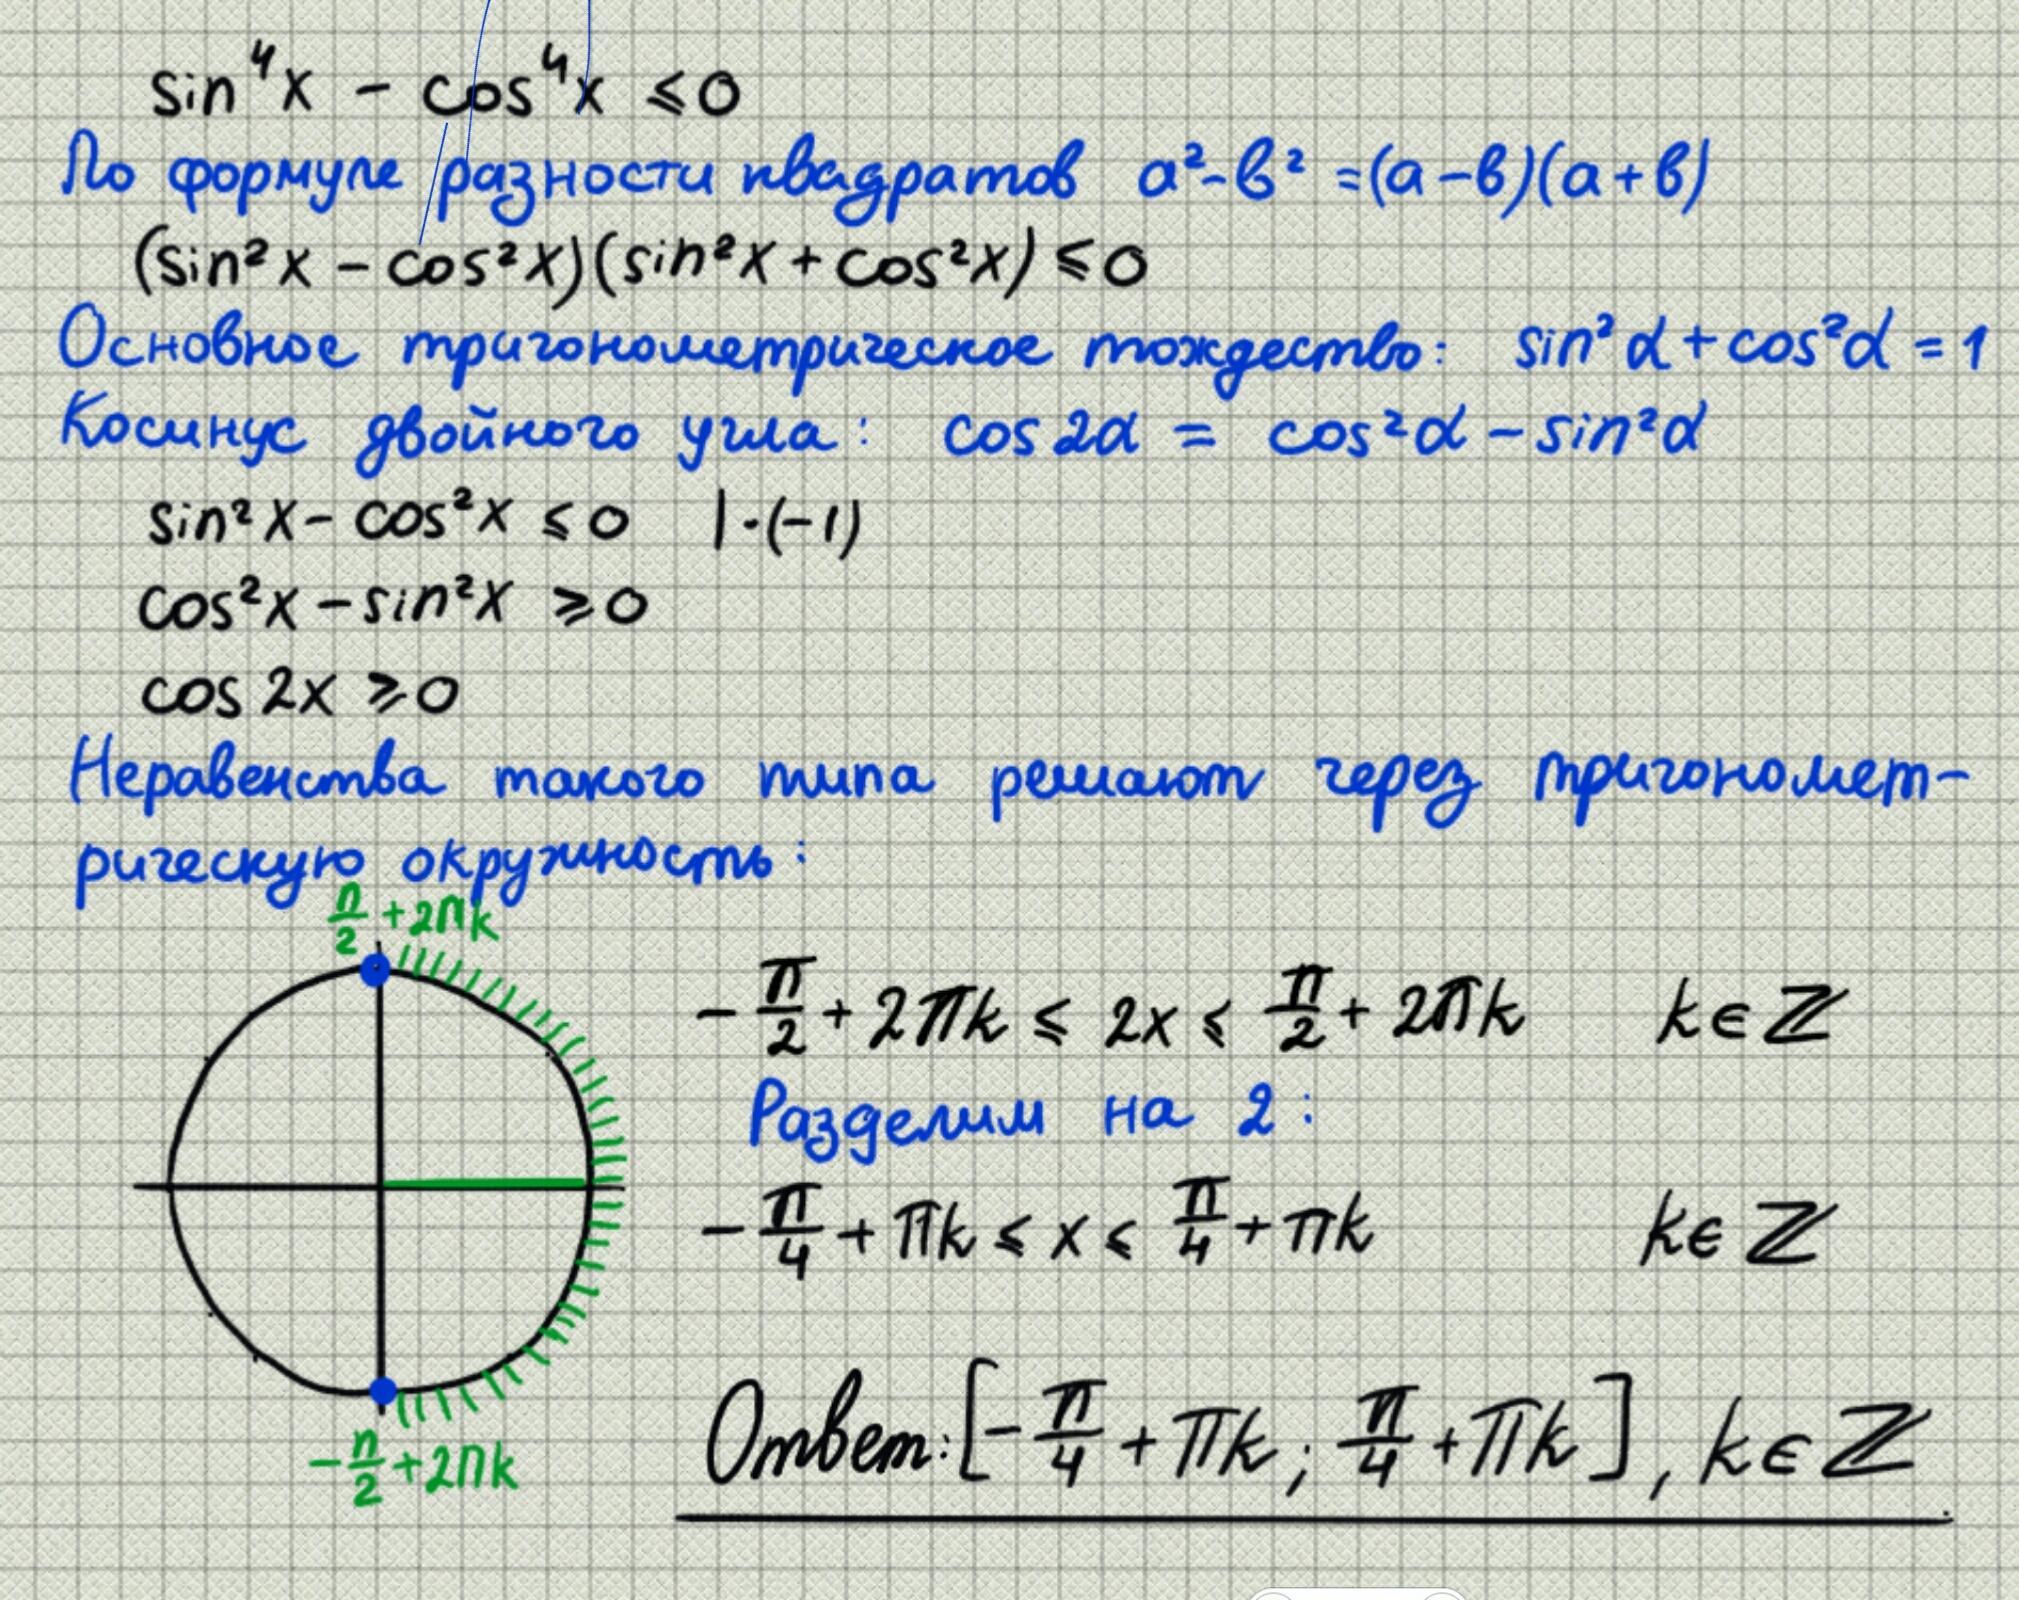 sin⁴x - cos⁴x ⩽ 0
По формуле разности квадратов a² - в² = (a - в)(a + в)
(sin²x - cos²x)(sin²x + cos²x) ⩽ 0
Основное тригонометрическое тождество: sin²α + cos²α = 1
Косинус двойного угла: cos 2α = cos²α - sin²α
sin²x - cos²x ⩽ 0 | · (-1)
cos²x - sin²x ⩾ 0
cos 2x ⩾ 0
Неравенства такого типа решают через тригономет-
рическую окружность:
π/2 + 2πk
-π/2 + 2πk ⩽ 2x ⩽ π/2 + 2πk k ∈ ℤ
Разделим на 2:
-π/4 + πk ⩽ x ⩽ π/4 + πk k ∈ ℤ
-π/2 + 2πk
Ответ: [-π/4 + πk; π/4 + πk], k ∈ ℤ